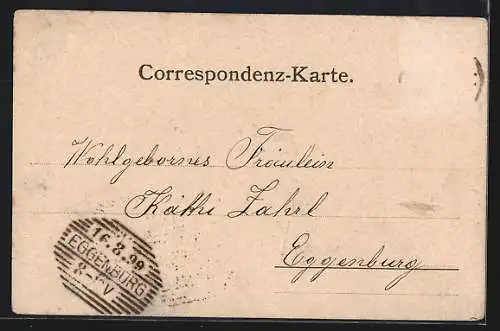 Correspondenz-Karte.
Wohlgebornes Fräulein
Käthi Zahrl
Eggenburg
16.8.99
EGGENBURG
8-V